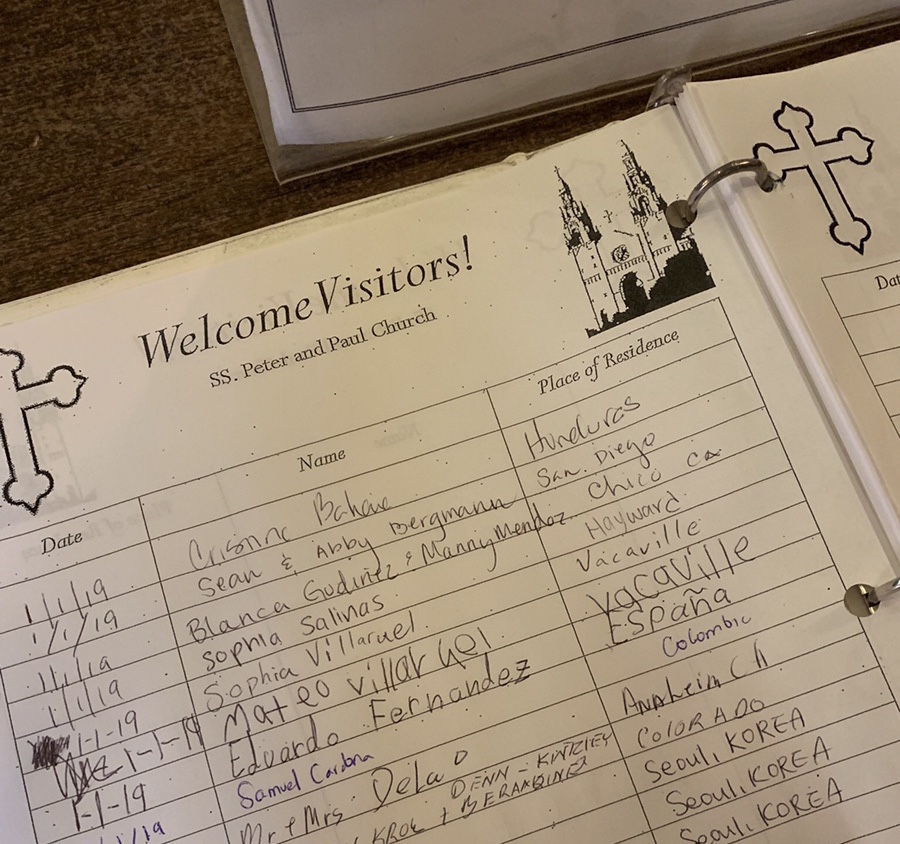 Welcome Visitors!
SS. Peter and Paul Church
Date Name Place of Residence
Dat
1/1/19 Honduras
1/1/19 Sean & Abby Bergmann San. Diego
1/1/19 Blanca Godinez & Manny Mendoz Chico Ca
1/1/19 Sophia Salinas Hayward
1-1-19 Sophia Villaruel Vacaville
1-1-19 Mateo Villaruel Vacaville
1-1-19 Eduardo Fernandez España
1/19 Samuel Cardona Colombia
Mr + Mrs. DeLao Anaheim CA
KROL + COLORADO
Seoul, KOREA
Seoul, KOREA
Seoul, KOREA